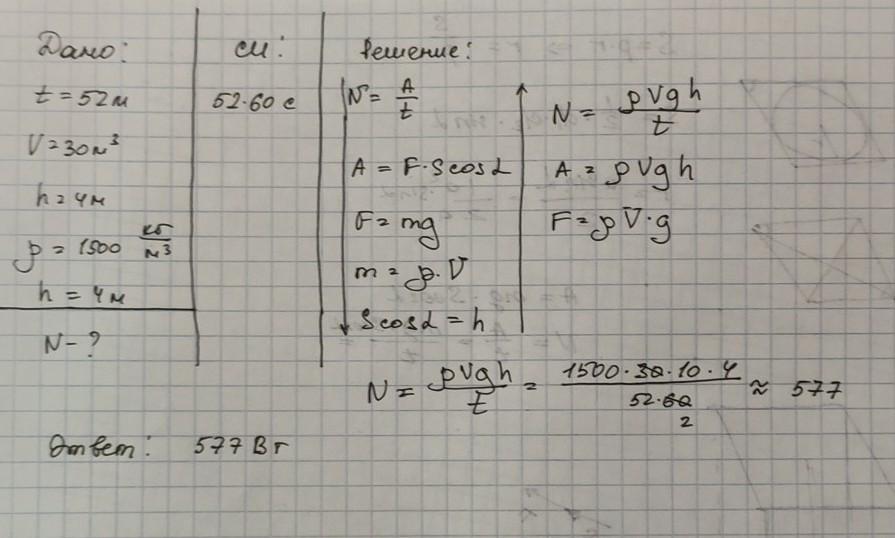 Дано:
t = 52м
V = 30м³
h = 4м
ρ = 1500 кг/м³
h = 4м
N - ?
СИ:
52·60 с
Решение:
N = A/t
A = F·Scosα
F = mg
m = ρ·V
Scosα = h
N = ρVgh/t
A = ρVgh
F = ρV·g
N = ρVgh/t = 1500·30·10·4/52·60 ≈ 577
2
Ответ: 577 Вт